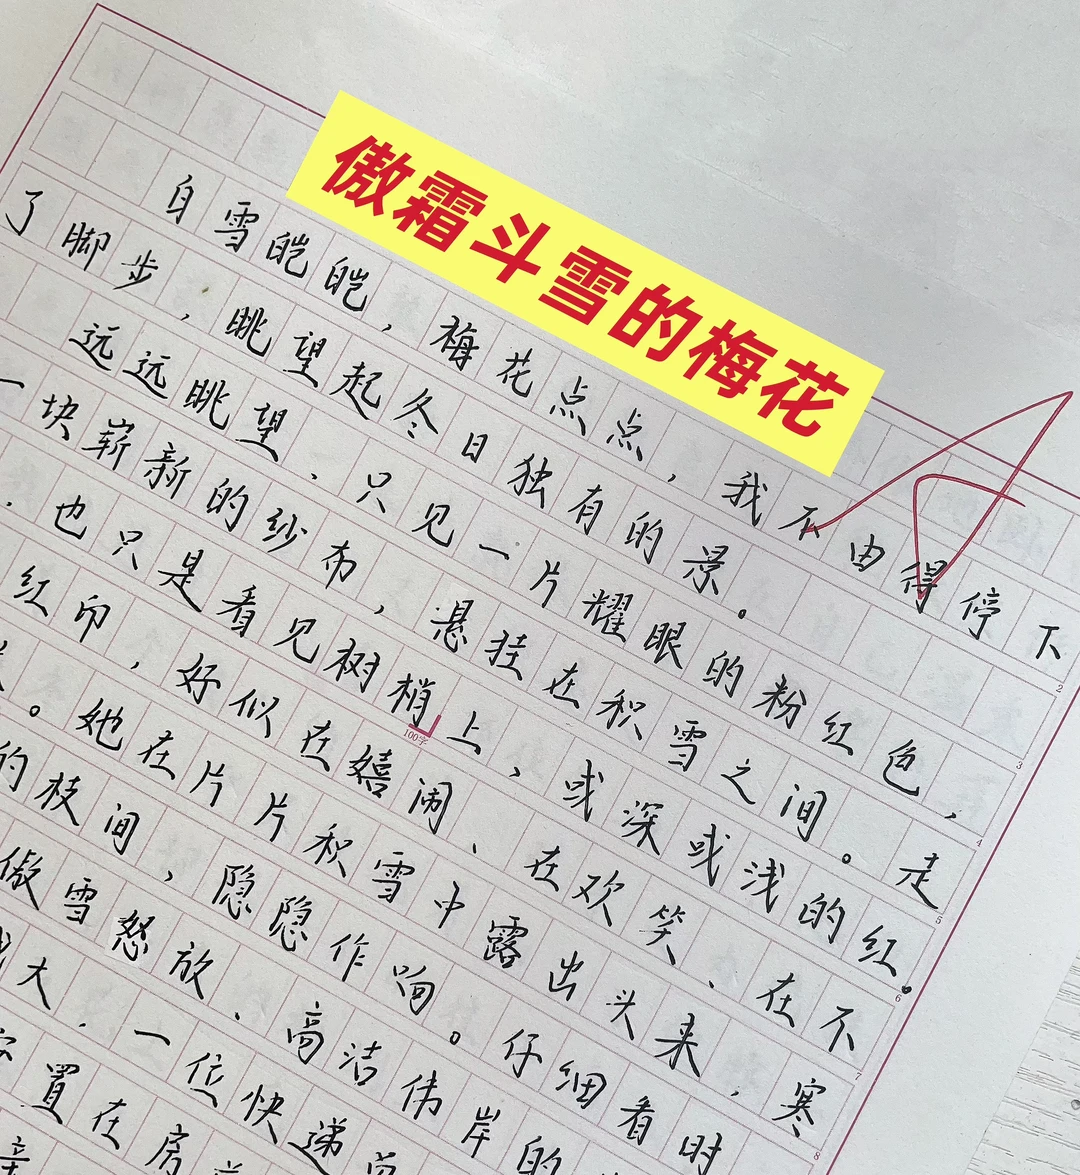 傲霜斗雪的梅花
白雪皑皑，梅花点点，我不由得停下
了脚步，眺望起冬日独有的景。
远远眺望，只见一片耀眼的粉红色，
一块崭新的纱布，悬挂在积雪之间。走
，也只是看见树梢上，或深或浅的红。
100字
红印，好似在嬉闹、在欢笑、在不
。她在片片积雪中露出头来，寒
的枝间，隐隐作响。仔细看时
傲雪怒放、高洁伟岸的
大，一位快递
置在房
2
3
4
5
6
7
8